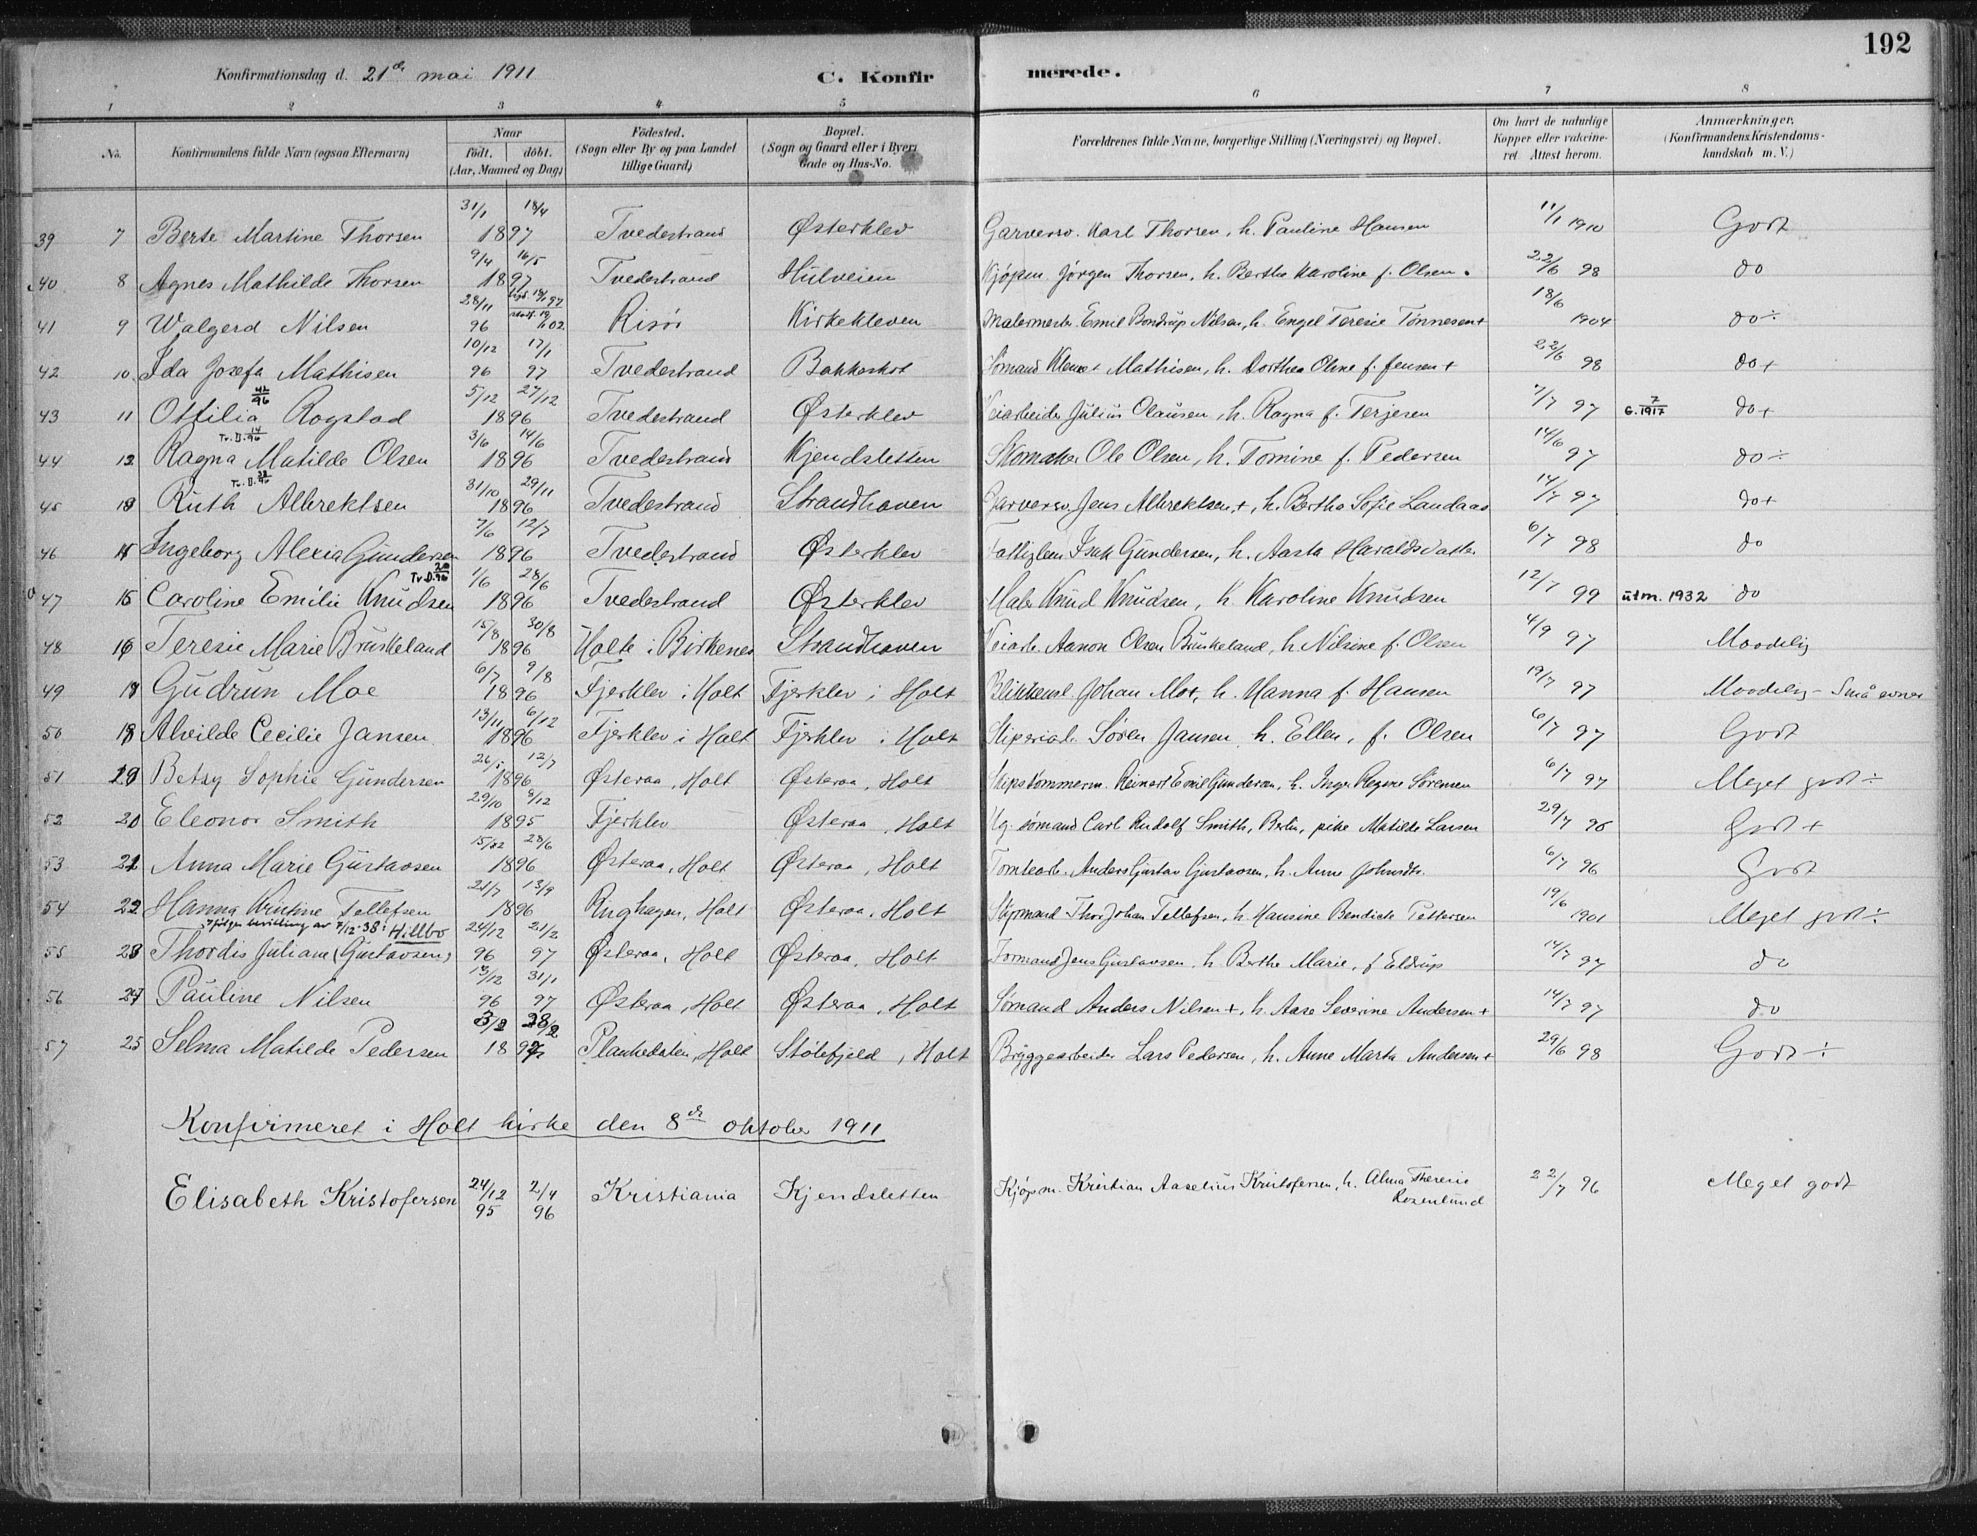 192
Konfirmationsdag d. 21de mai 1911 C. Konfirmerede.
1 2 3 4 5 6 7 8
No. Konfirmandens fulde Navn (ogsaa Efternavn) Naar födt. döbt. (Aar, Maaned og Dag) Födested. (Sogn eller By og paa Landet tillige Gaard) Bopæl. (Sogn og Gaard eller i Byer: Gade og Hus-No. Forældrenes fulde Navne, borgerlige Stilling (Næringsvei) og Bopæl. Om havt de naturlige Kopper eller vakcineret. Attest herom. Anmærkninger. (Konfirmandens Kristendomskundskab m. V.)
39 7 Berte Martine Thorsen 31/1 18/4 1897 Tvedestrand Østerklev Garversv. Karl Thorsen, h. Pauline Hansen 11/1 1910 Godt
40 8 Agnes Mathilde Thorsen 9/4 16/5 1897 Tvedestrand Hulveien Kjøpm. Jørgen Thorsen, h. Berthe Karoline f. Olsen 22/6 98 do
41 9 Walgerd Nilsen 28/11 96 Risør Kirkekleven Malermester Emil Bondrup Nilsen, h. Engel Teresie Tønnesen+ 18/6 1904 do ÷
42 10 Ida Josefa Mathisen 10/12 96 17/1 97 Tvedestrand Bakkeskot Sømand Mathisen, h. Dorthea Oline f. Jensen+ 22/6 98 do+
43 11 Ottilia Rogstad 5/12 27/12 1896 Tvedestrand Østerklev Veiarbeider Julius Olausen, h. Ragna f. Terjesen 7/7 97 G. 7/1917 do+
44 12 Ragna Matilde Olsen 3/6 14/6 1896 Tvedestrand Kjendsletten Skomaker Ole Olsen, h. Tomine f. Pedersen 14/6 97 do ÷
45 13 Ruth Albrektsen 31/10 29/11 1896 Tvedestrand Strandhaven Garversv. Jens Albrektsen+, h. Bertha Sofie Landaas 14/7 97 do+
46 Ingeborg Alexia Gundersen 7/6 12/7 1896 Tvedestrand Østerklev Fattiglem Isak Gundersen, h. Aasta Haraldsdatter 6/7 98 do
47 15 Caroline Emilie Knudsen 1/6 28/6 1896 Tvedestrand Østerklev Maler Knud Knudsen, h. Karoline Knudsen 12/7 99 utm. 1932 do
48 16 Teresie Marie Bruskeland 15/8 30/8 1896 Holte i Birkenes Strandhaven Veiarb. Aanon Olsen Bruskeland, h. Nilsine f. Olsen 4/9 97 Maadelig
49 Gudrun Moe 6/7 9/8 1896 Fjerklev i Holt Fjerklev i Holt Johan Moe, h. Hanna f. Hansen 19/7 97 Maadelig - Små evner
50 Alvilde Cecilie Jansen 13/11 6/12 1896 Fjerklev i Holt Fjerklev i Holt Søren Jansen, h. Ellen, f. Olsen 6/7 97 Godt
51 Betsy Sophie Gundersen 12/7 1896 Østeraa, Holt Østeraa, Holt Skipstømmerm. Reinert Emil Gundersen, h. Inger Regine Sørensen 6/7 97 Meget godt ÷
52 20 Eleonor Smith 29/10 8/12 1895 Fjerklev Østeraa, Holt Ug. sømand Carl Rudolf Smith, Berlin, pike Matilde Larsen 29/7 96 Godt +
53 21 Anna Marie Gustavsen 28/6 1896 Østeraa, Holt Østeraa, Holt Tomtearb. Anders Gustav Gustavsen, h. Anne Johnsdtr. 6/7 96 Godt
54 22 Hanna Kristine Tellefsen 21/7 13/9 1896 Ringhagen, Holt Østeraa, Holt Styrmand Thor Johan Tellefsen, h. Hansine Bendicte Pettersen 19/6 1901 Meget godt ÷
ifølge bevilling av 7/12-38: Hillbo
55 23 Thordis Juliane (Gustavsen) 24/12 96 21/2 97 Østeraa, Holt Østeraa, Holt Formand Jens Gustavsen, h. Berthe Marie, f Eldrup 14/7 97 do
56 24 Pauline Nilsen 13/12 96 31/1 97 Østeraa, Holt Østeraa, Holt Sømand Anders Nilsen+, h. Aase Severine Andersen+ 14/7 97 do
57 25 Selma Matilde Pedersen 3/2 28/2 1897 Plankedalen, Holt Stølefjeld, Holt Bryggearbeider Lars Pedersen, h. Anne Marta Andersen+ 29/6 98 Godt ÷
Konfirmeret i Holt kirke den 8de oktober 1911
Elisabeth Kristofersen 24/12 95 2/4 96 Kristiania Kjendsletten Kjøpm. Kristian Aaselius Kristofersen, h. Alma Theresie Rosenlund 22/7 96 Meget godt